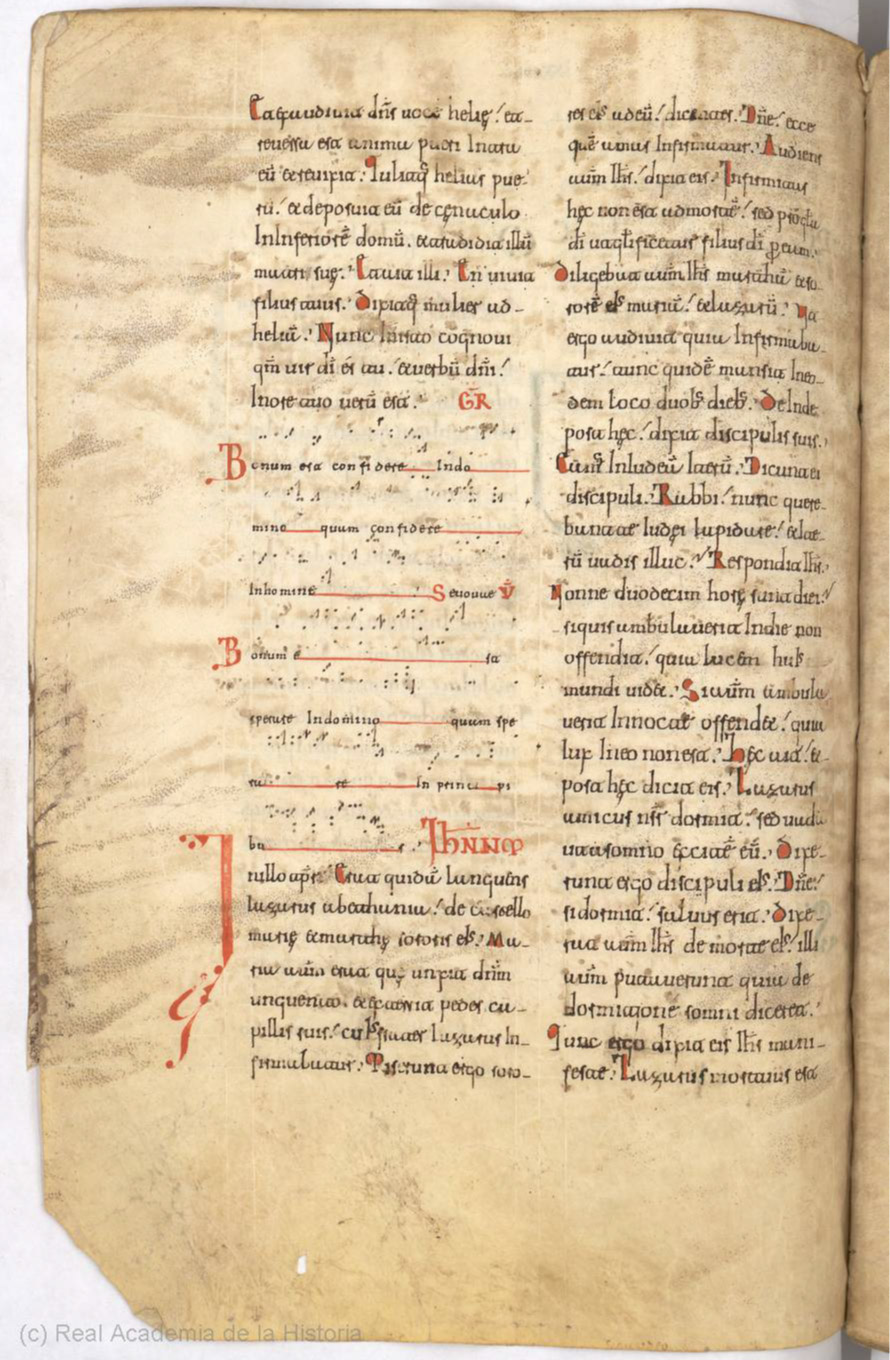 Et exaudiuit dñs uocē helię / et
reuersa est anima pueri Intra
eũ et reuixit. Tulitq; helias pue
rũ / et deposuit eũ de cenaculo
In Inferiorē domũ. et tradidit illũ
matri suę. Et ait illi. En uiuit
filius tuus. Dixitq; mulier ad
heliã. Nunc In isto cognoui
qm̃ uir di es tu / et uerbũ dñi /
In ore tuo uerũ est. GR
Bonum est confidere In do
mino quam confidere
In homine Seuouae V̄
Bonum ē sta
sperare In domino quam spe
ra re In princi pi
bu s. IohNNem
In illo tpr̃ Erat quidã languens
lazarus a bethania / de castello
marię et marthę sororis eĩ. Ma
ria autm̃ erat quę unxit dñm
unguento. et extersit pedes ca
pillis suis / cuĩ frater lazarus In
firmabatur. Miserunt ergo soro
res eĩ ad eũ / dicentes. Dñe / ecce
quē amas Infirmatur. Audiens
autm̃ Ihs̃ / dixit eis. Infirmitas
hęc non est ad mortē / sed pro gła
di ut glificetur filius di p̱ eum.
Diligebat autm̃ Ihs̃ marthã et so
rorē eĩ mariã / et lazarũ. Vt
ergo audiuit quia Infirmaba
tur / tunc quidē mansit In eo
dem loco duob; dieb;. Deinde
post hęc / dixit discipulis suis.
Eamꝰ In Iudeã Iterũ. Dicunt ei
discipuli. Rabbi / nunc quere
bant te Iudęi lapidare / et Ite
rũ uadis illuc. Respondit Ihs̃.
Nonne duodecim horę sunt diei /
si quis ambulauerit In die non
offendit / quia lucem huĩ
mundi uidet. Si autm̃ ambula
uerit In nocte offendet / quia
lux In eo non est. Hęc ait / et
post hęc dicit eis. Lazarus
amicus nr̃ dormit / sed uado
ut a somno excitē eũ. Dixe
runt ergo discipuli eĩ. Dñe /
si dormit / saluus erit. Dixe
rat autm̃ Ihs̃ de morte eĩ / illi
autm̃ putauerunt quia de
dormitione somni diceret.
Tunc ergo dixit eis Ihs̃ mani
feste. Lazarus mortuus est
(c) Real Academia de la Historia